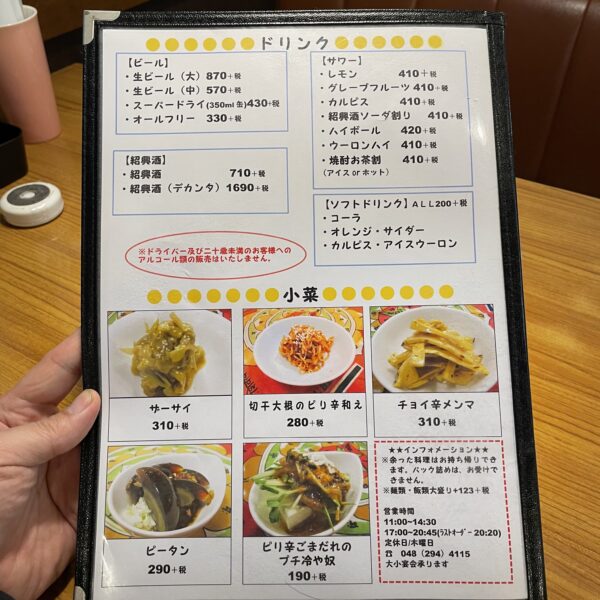 ドリンク
【ビール】
・生ビール（大）870+税
・生ビール（中）570+税
・スーパードライ(350ml 缶)430+税
・オールフリー 330+税
【紹興酒】
・紹興酒 710+税
・紹興酒（デカンタ）1690+税
【サワー】
・レモン 410+税
・グレープフルーツ 410+税
・カルピス 410+税
・紹興酒ソーダ割り 410+税
・ハイボール 420+税
・ウーロンハイ 410+税
・焼酎お茶割 410+税
（アイス or ホット）
【ソフトドリンク】ALL200+税
・コーラ
・オレンジ・サイダー
・カルピス・アイスウーロン
※ドライバー及び二十歳未満のお客様への
アルコール類の販売はいたしません。
小菜
ザーサイ
310+税
切干大根のピリ辛和え
280+税
チョイ辛メンマ
310+税
ピータン
290+税
ピリ辛ごまだれの
プチ冷や奴
190+税
★★インフォメーション★★
※余った料理はお持ち帰りでき
ます。パック詰めは、お受けで
きません。
※麺類・飯類大盛り+123+税
営業時間
11:00~14:30
17:00~20:45(ﾗｽﾄｵｰﾀﾞｰ 20:20)
定休日/木曜日
☎ 048（294）4115
大小宴会承ります